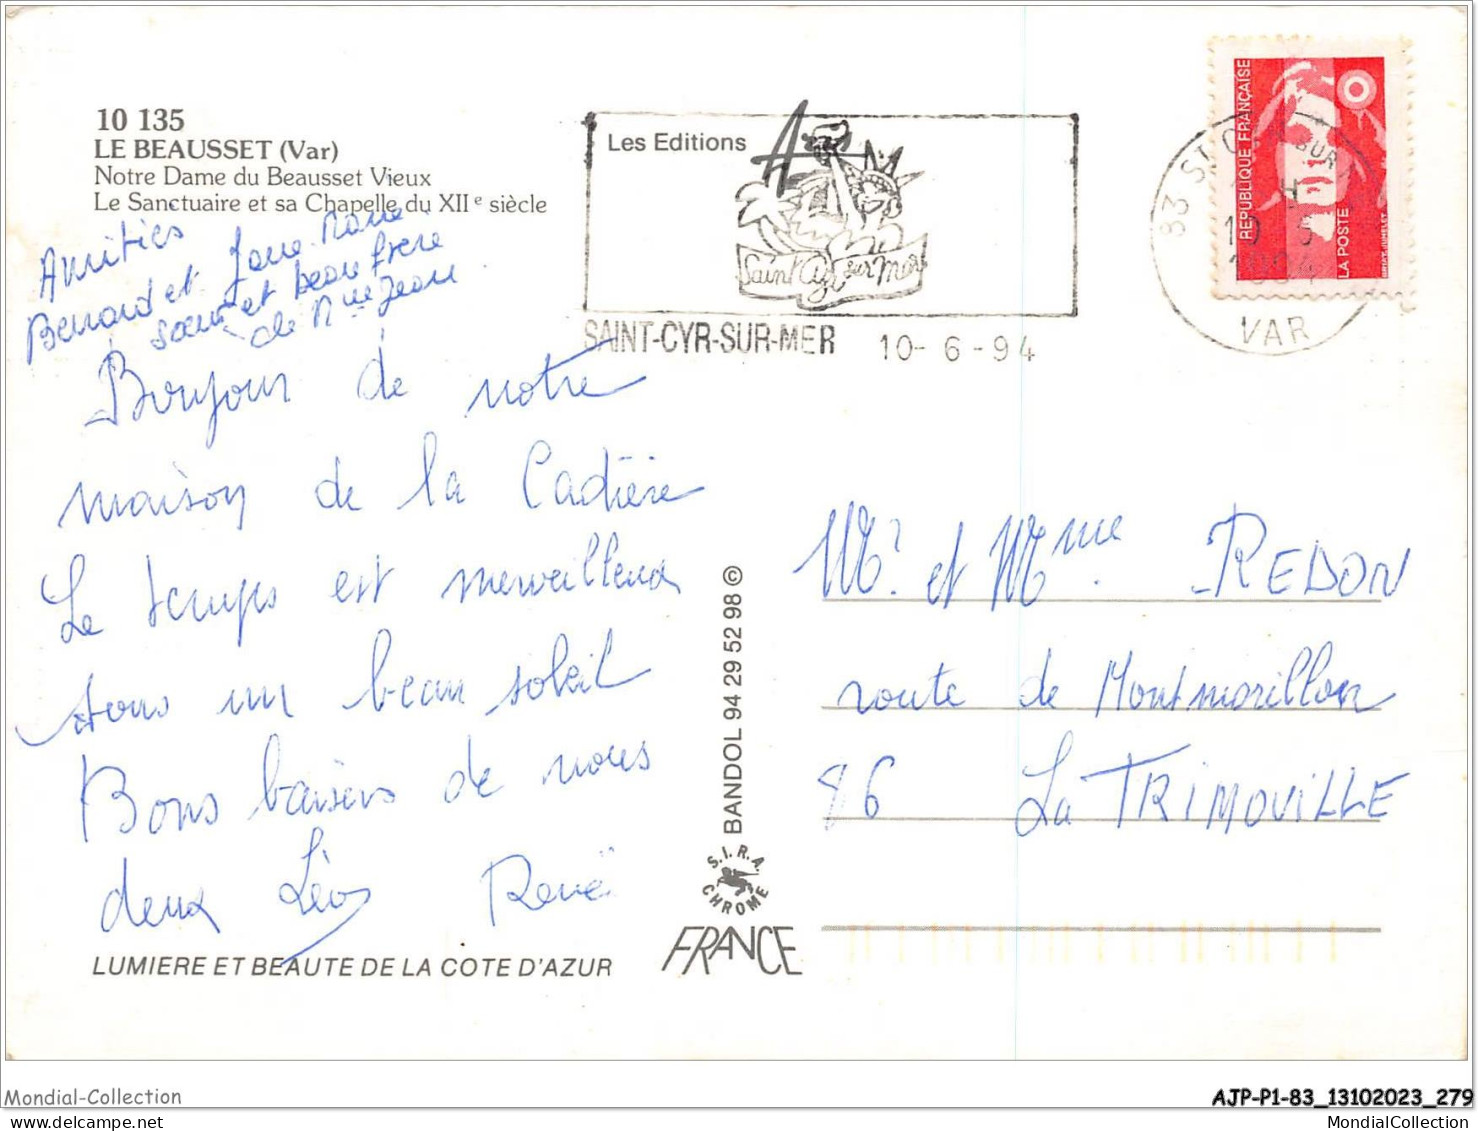 10 135
LE BEAUSSET (Var)
Notre Dame du Beausset Vieux
Le Sanctuaire et sa Chapelle du XIIe siècle
Amitiés
Bernard et
soeur et beau frère
de Mme Jean
Bonjour de notre
maison de la Cadière
Le temps est merveilleux
un beau soleil
Bons baisers de nous
deux Léos Renée
LUMIERE ET BEAUTE DE LA COTE D'AZUR
BANDOL 94 29 52 98 ©
S.I.R.A.
CHROME
FRANCE
Les Editions AZ
Saint Cyr sur Mer
SAINT-CYR-SUR-MER 10-6-94
REPUBLIQUE FRANÇAISE
LA POSTE
83 ST CYR SUR
10 6
1994
VAR
Mr et Mme REDON
route de Montmorillon
86 La TRIMOUILLE
Mondial-Collection
AJP-P1-83_13102023_279
www.mondialcollection.com
MondialCollection.com